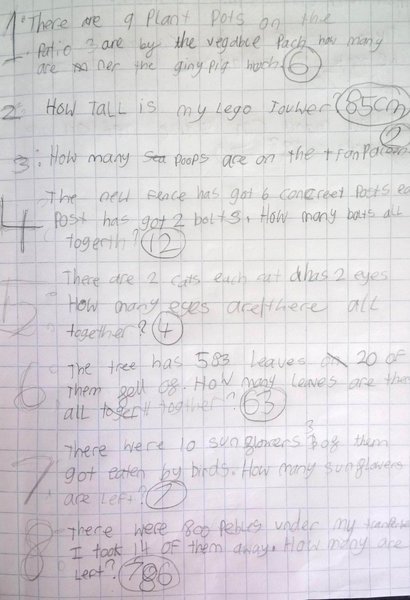 1. There are 9 Plant Pots on the
Patio 3 are by the vegdble Pach how many
are ner the giny pig huch. 6
2 How TALL is my Lego Touwer? 85cm
3: How many poops are on the
The new fence has got 6 concreet Posts
4 Post has got 2 bolts. How many bolts all
togerth? 12
5 There are 2 cats each cat has 2 eyes
How many eyes are there all
together? 4
6 The tree has 583 leaves 20 OF
them fell of. How many leaves are
all together? 63
There were 10 sunflowers 3 of them
7 got eaten by birds. How many sunflowers
are Left? 7
8 There were 800 Pebuls under my
I took 14 OF them away. How many are
Left? 786